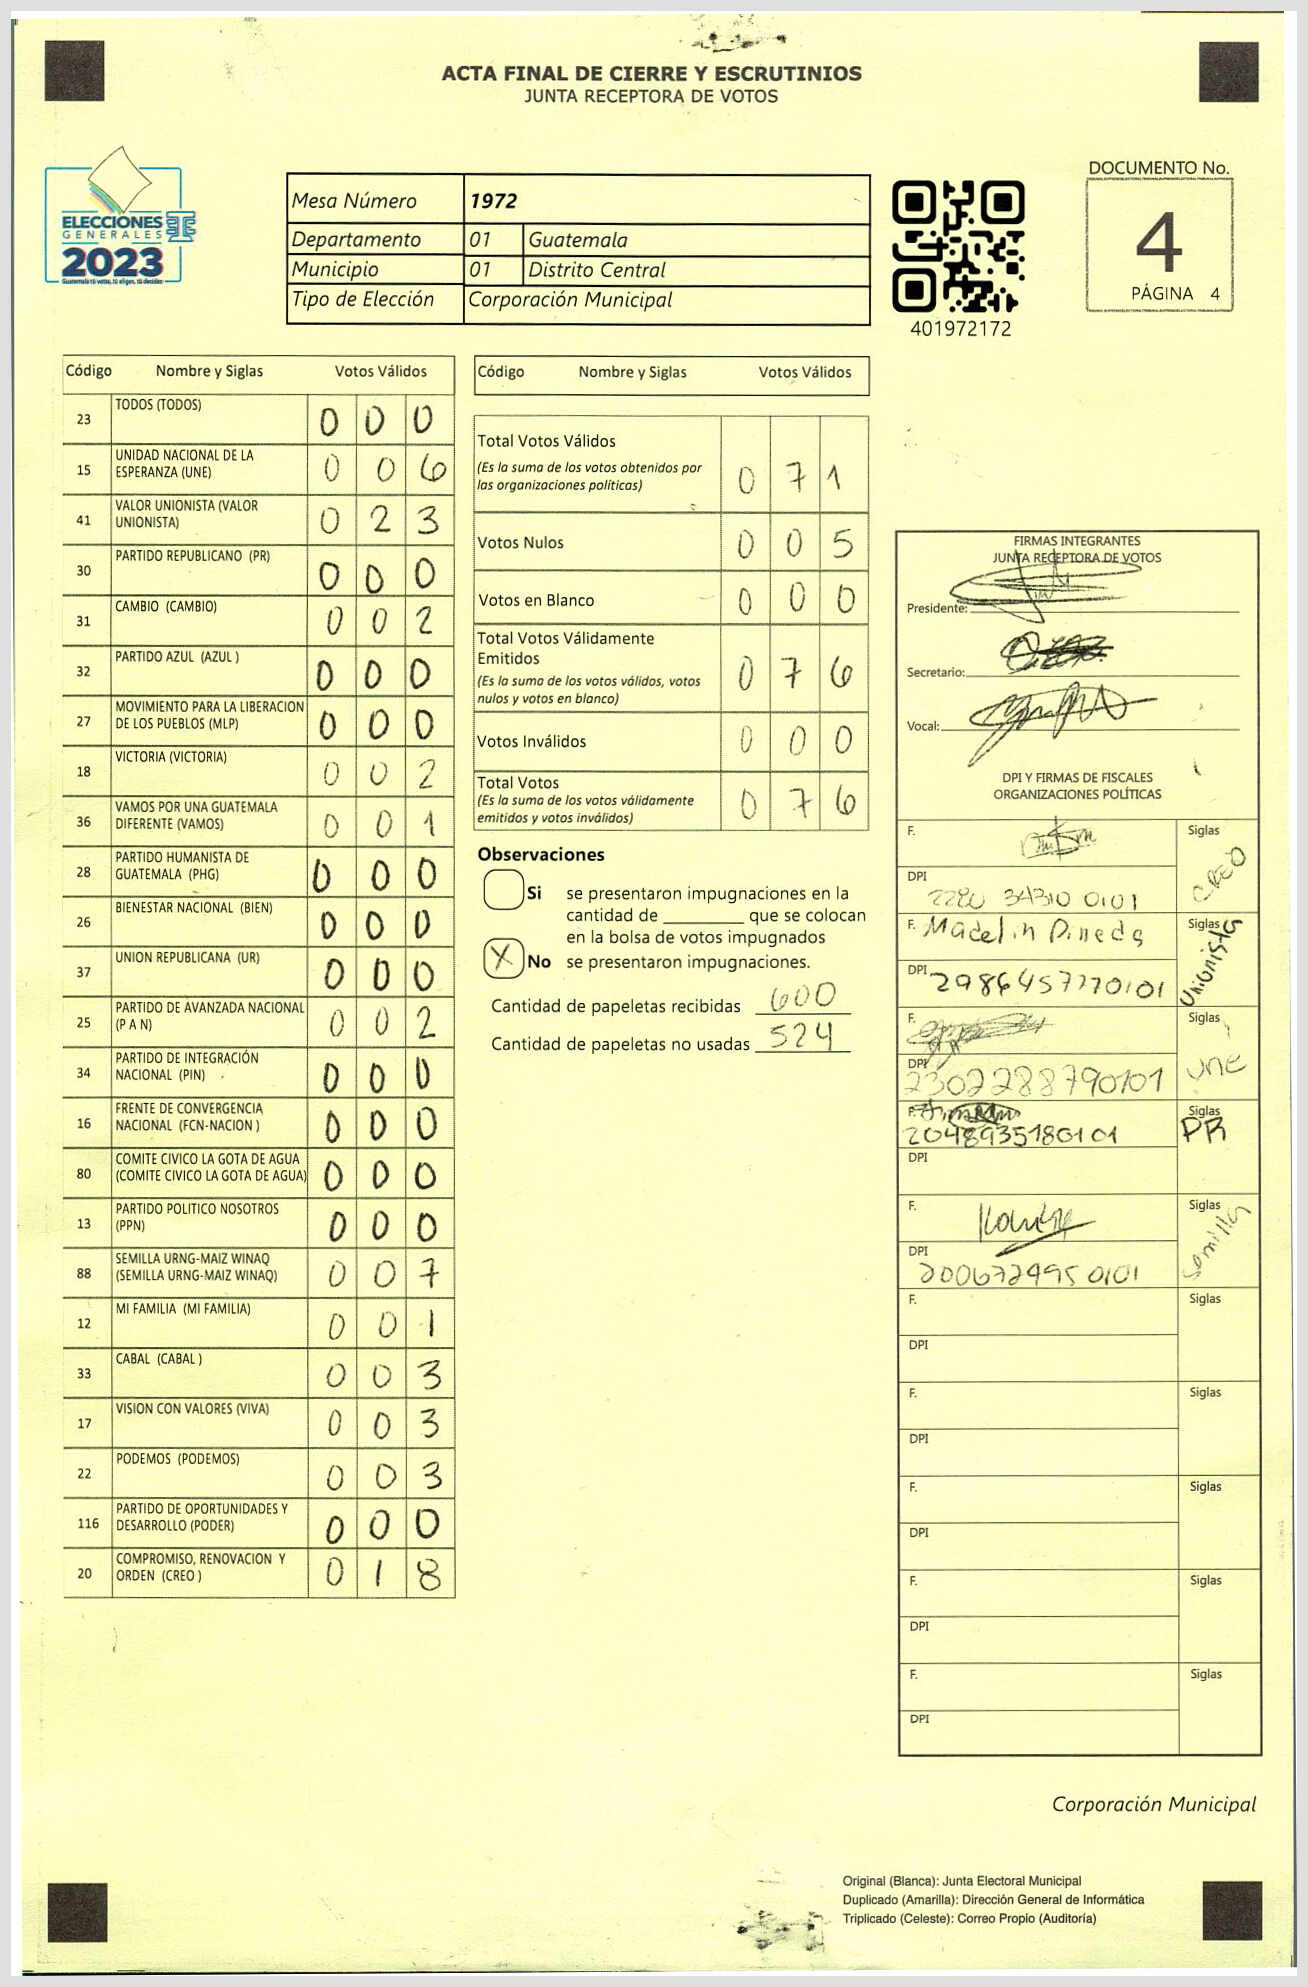 ACTA FINAL DE CIERRE Y ESCRUTINIOS
JUNTA RECEPTORA DE VOTOS
ELECCIONES
GENERALES
2023
Guatemala tú votas, tú eliges, tú decides
Mesa Número 1972
Departamento 01 Guatemala
Municipio 01 Distrito Central
Tipo de Elección Corporación Municipal
401972172
DOCUMENTO No.
4
PÁGINA 4
Código Nombre y Siglas Votos Válidos
23 TODOS (TODOS) 0 0 0
15 UNIDAD NACIONAL DE LA ESPERANZA (UNE) 0 0 6
41 VALOR UNIONISTA (VALOR UNIONISTA) 0 2 3
30 PARTIDO REPUBLICANO (PR) 0 0 0
31 CAMBIO (CAMBIO) 0 0 2
32 PARTIDO AZUL (AZUL ) 0 0 0
27 MOVIMIENTO PARA LA LIBERACION DE LOS PUEBLOS (MLP) 0 0 0
18 VICTORIA (VICTORIA) 0 0 2
36 VAMOS POR UNA GUATEMALA DIFERENTE (VAMOS) 0 0 1
28 PARTIDO HUMANISTA DE GUATEMALA (PHG) 0 0 0
26 BIENESTAR NACIONAL (BIEN) 0 0 0
37 UNION REPUBLICANA (UR) 0 0 0
25 PARTIDO DE AVANZADA NACIONAL (P A N) 0 0 2
34 PARTIDO DE INTEGRACIÓN NACIONAL (PIN) 0 0 0
16 FRENTE DE CONVERGENCIA NACIONAL (FCN-NACION ) 0 0 0
80 COMITE CIVICO LA GOTA DE AGUA (COMITE CIVICO LA GOTA DE AGUA) 0 0 0
13 PARTIDO POLITICO NOSOTROS (PPN) 0 0 0
88 SEMILLA URNG-MAIZ WINAQ (SEMILLA URNG-MAIZ WINAQ) 0 0 7
12 MI FAMILIA (MI FAMILIA) 0 0 1
33 CABAL (CABAL ) 0 0 3
17 VISION CON VALORES (VIVA) 0 0 3
22 PODEMOS (PODEMOS) 0 0 3
116 PARTIDO DE OPORTUNIDADES Y DESARROLLO (PODER) 0 0 0
20 COMPROMISO, RENOVACION Y ORDEN (CREO ) 0 1 8
Código Nombre y Siglas Votos Válidos
Total Votos Válidos 0 7 1
(Es la suma de los votos obtenidos por
las organizaciones políticas)
Votos Nulos 0 0 5
Votos en Blanco 0 0 0
Total Votos Válidamente
Emitidos 0 7 6
(Es la suma de los votos válidos, votos
nulos y votos en blanco)
Votos Inválidos 0 0 0
Total Votos 0 7 6
(Es la suma de los votos válidamente
emitidos y votos inválidos)
Observaciones
Si se presentaron impugnaciones en la
cantidad de ________ que se colocan
en la bolsa de votos impugnados
X No se presentaron impugnaciones.
Cantidad de papeletas recibidas 600
Cantidad de papeletas no usadas 524
FIRMAS INTEGRANTES
JUNTA RECEPTORA DE VOTOS
Presidente:
Secretario:
Vocal:
DPI Y FIRMAS DE FISCALES
ORGANIZACIONES POLÍTICAS
F. Siglas CREO
DPI 2280 34310 0101
F. Madelin Pineda Siglas Unionista
DPI 2986457770101
F. Siglas UNE
DPI 2302288790101
F. Siglas PR
2048935180101
DPI
F. Siglas Semilla
DPI 2006729950101
F. Siglas
DPI
F. Siglas
DPI
F. Siglas
DPI
F. Siglas
DPI
F. Siglas
DPI
Corporación Municipal
Original (Blanca): Junta Electoral Municipal
Duplicado (Amarilla): Dirección General de Informática
Triplicado (Celeste): Correo Propio (Auditoría)